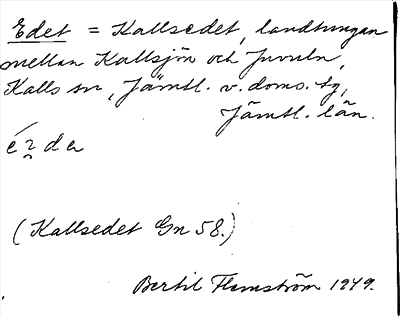 Edet = Kallsedet, landtungan
mellan Kallsjön och Juvuln,
Kalls sn, Jämtl. v. doms. tg,
Jämtl. län.
(Kallsedet Gn 58.)
Bertil Flemström 1949.